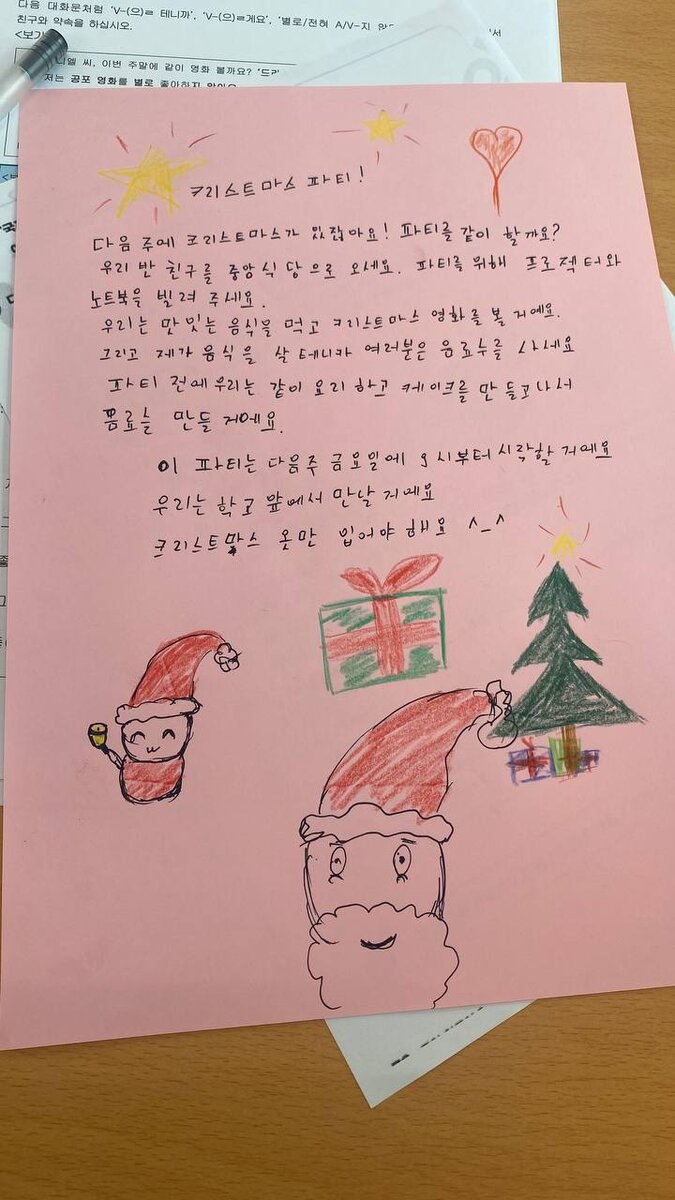 다음 대화문처럼 'V-(으)ㄹ 테니까', 'V-(으)ㄹ게요', '별로/전혀 A/V-지
친구와 약속을 하십시오.
<보기
니엘 씨, 이번 주말에 같이 영화 볼까요?
저는 공포 영화를 별로 좋아하지 않아요
크리스트마스 파티!
다음 주에 크리스트마스가 있잖아요! 파티를 같이 할까요?
우리 반 친구를 중앙식당으로 오세요. 파티를 위해 프로젝터와
노트북을 빌려 주세요.
우리는 맛있는 음식을 먹고 크리스트마스 영화를 볼 거예요.
그리고 제가 음식을 살 테니카 여러분은 음료수를 사세요
파티 전에 우리는 같이 요리 하고 케이크를 만들고나서
음료를 만들 거에요.
이 파티는 다음주 금요일에 9시부터 시작할 거예요
우리는 학교 앞에서 만날 거예요
크리스트마스 옷만 입어야 해요 ^_^